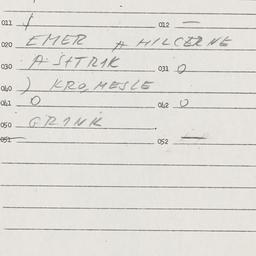 011 / 012 —
020 EMER A MILCERNE
030 A SITRIK 031 0
040 ) KROMESLE
041 0 042 0
050 GRINK
051 052 —